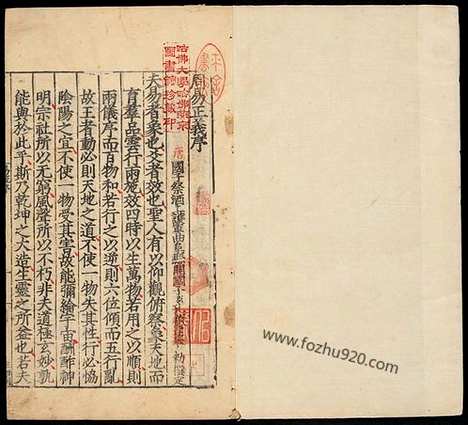 周易正義序
唐國子祭酒上護軍曲阜縣開國子臣孔穎達奉勑撰定
夫易者象也爻者效也聖人有以仰觀俯察象天地而
育羣品雲行雨施效四時以生萬物若用之以順則
兩儀序而百物和若行之以逆則六位傾而五行亂
故王者動必則天地之道不使一物失其性行必恊
隂陽之宜不使一物受其害故能彌綸宇宙酬酢神
明宗社所以无窮風聲所以不朽非夫道極玄妙孰
能與於此乎斯乃乾坤之大造生靈之所益也若夫
哈佛大學哈佛燕京
圖書館珍藏印
www.fozhu920.com